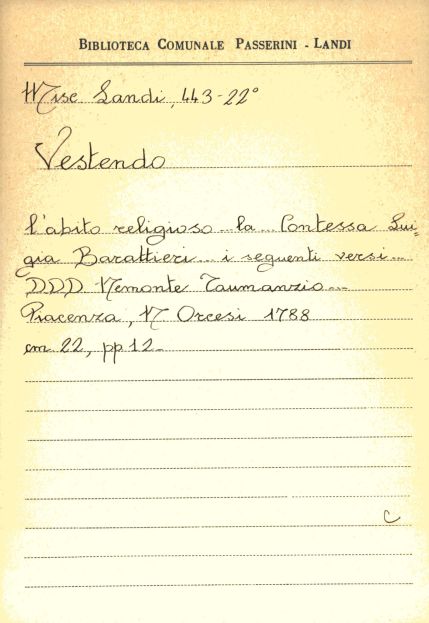 BIBLIOTECA COMUNALE PASSERINI - LANDI
Misc Landi, 443-22°
Vestendo
l'abito religioso... la... Contessa Lui=
gia Barattieri... i seguenti versi...
DDD Nemonte Taumanzio...
Piacenza, N Orcesi 1788
cm 22, pp 12-
C